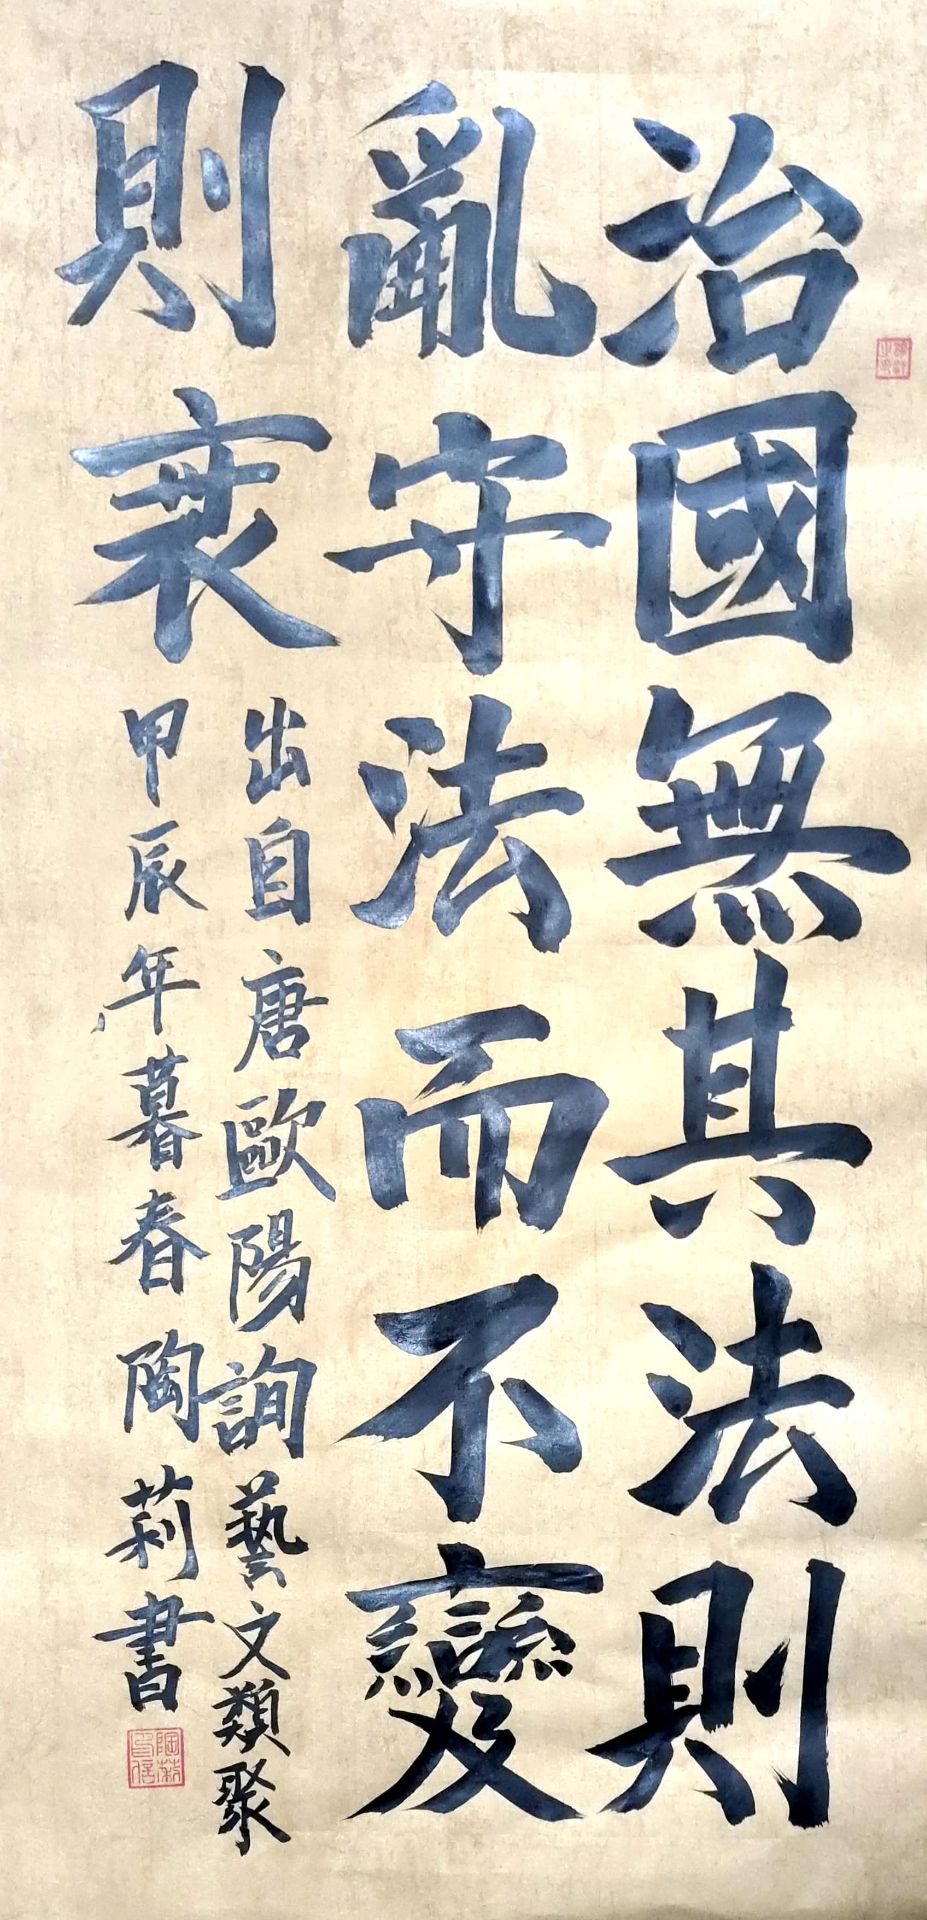 治國無其法則
亂守法而不變
則衰
出自唐歐陽詢藝文類聚
甲辰年暮春陶莉書
陶莉印信